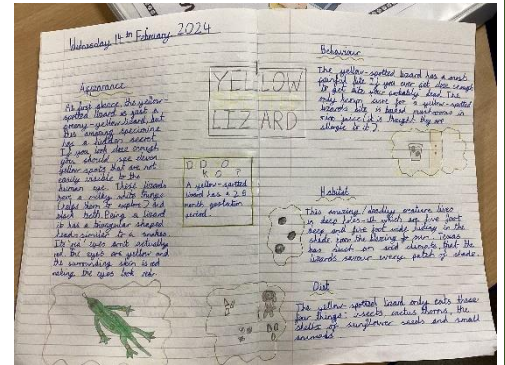 Wednesday 14th February 2024
Appearance
At first glance, the yellow-
spotted lizard is just a
greeny-yellow lizard, but
this amazing specimine
has a hidden secret.
If you look close enough
you should see eleven
yellow spots that are not
easily visible to the
human eye. These lizards
have a milky white tongue
helps them to
black teeth. Being a lizard
it has a triangular shaped
head similar to a snakes.
Its red eyes aren't actually
red the eyes are yellow and
the surrounding skin is red
making the eyes look red.
YELLOW
LIZARD
D D O
K O ?
A yellow-spotted
lizard has a 2.5
month gestation
period.
Behaviour
The yellow-spotted lizard has a most
painful bite if you ever get close enough
to get bite your probably dead. The
only known cure for a yellow-spotted
lizards bite is
(it is thought they are
allergic to it).
Habitat
This amazing/deadly creature lives
in deep holes
deep and five foot wide hiding in the
shade from the blazing
has such an
lizards savour every patch of shade.
Diet
The yellow-spotted lizard only eats these
four things: insects, cactus thorns, the
shells of sunflower seeds and small
animals